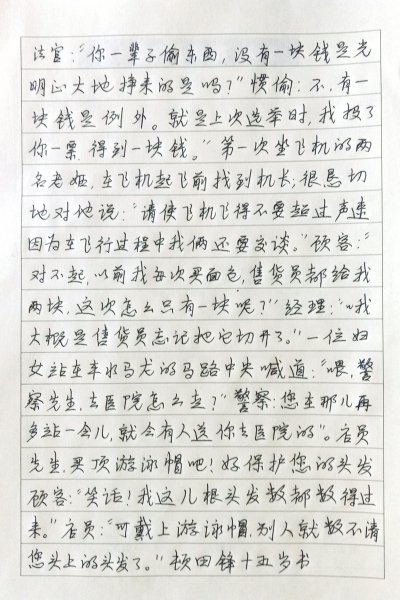 法官："你一辈子偷东西，没有一块钱是光
明正大地挣来的是吗？"惯偷：不，有一
块钱是例外。就是上次选举时，我投了
你一票，得到一块钱。"第一次坐飞机的两
名老妪，在飞机起飞前找到机长，很恳切
地对他说："请使飞机飞得不要超过声速
因为在飞行过程中我俩还要交谈。"顾客："
对不起，以前我每次买面包，售货员都给我
两块，这次怎么只有一块呢？"经理："哦我
大概是售货员忘记把它切开了。"一位妇
女站在车水马龙的马路中央喊道："喂，警
察先生，去医院怎么走？"警察：您在那儿再
多站一会儿，就会有人送你去医院的"。店员
先生，买顶游泳帽吧！好保护您的头发
顾客："笑话！我这几根头发数都数得过
来。"店员："可戴上游泳帽，别人就数不清
您头上的头发了。"顿田锋十五岁书